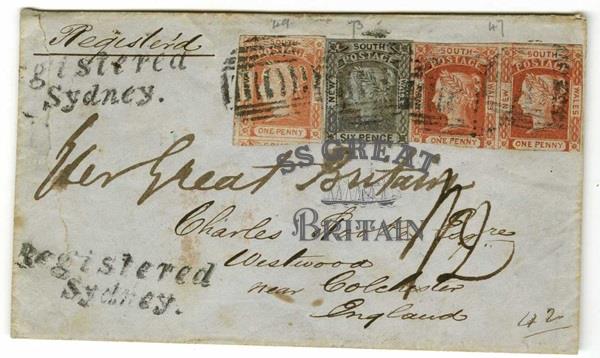 49 73 47
Register'd
gistered
Sydney.
SOUTH
POSTAGE
ONE PENNY
NEW SOUTH WALES
POSTAGE
SIX PENCE
SOUTH
POSTAGE
WALES
ONE PENNY
NEW SOUTH WALES
POSTAGE
ONE PENNY
SS GREAT
BRITAIN
Per Great Britain
Charles Esqre
Westwood
near Colchester
England
Registered
Sydney.
42